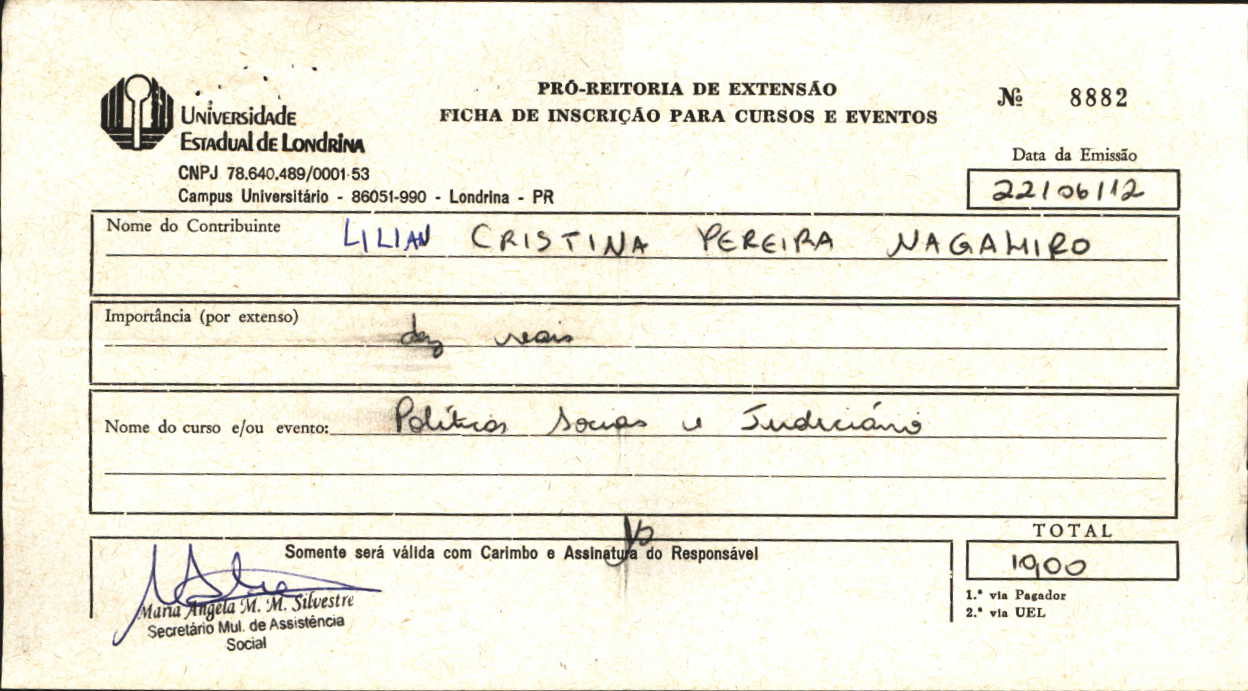 UNIVERSIDADE
ESTADUAL DE LONDRINA
CNPJ 78.640.489/0001-53
Campus Universitário - 86051-990 - Londrina - PR
PRÓ-REITORIA DE EXTENSÃO
FICHA DE INSCRIÇÃO PARA CURSOS E EVENTOS
Nº 8882
Data da Emissão
22/06/12
Nome do Contribuinte LILIAN CRISTINA PEREIRA NAGAHIRO
Importância (por extenso)
dez reais
Nome do curso e/ou evento: Políticas Sociais e Judiciário
Somente será válida com Carimbo e Assinatura do Responsável
Maria Angela M. M. Silvestre
Secretário Mul. de Assistência
Social
TOTAL
10,00
1.ª via Pagador
2.ª via UEL